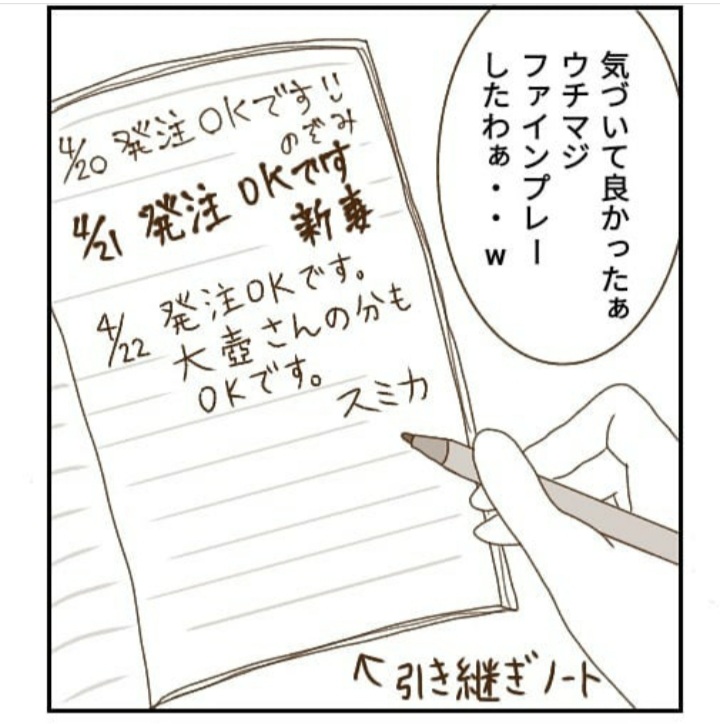 気づいて良かったぁ
ウチマジ
ファインプレー
したわぁ・・w
4/20 発注OKです!!
のぞみ
4/21 発注OKです
新妻
4/22 発注OKです。
大壺さんの分も
OKです。
スミカ
↑引き継ぎノート